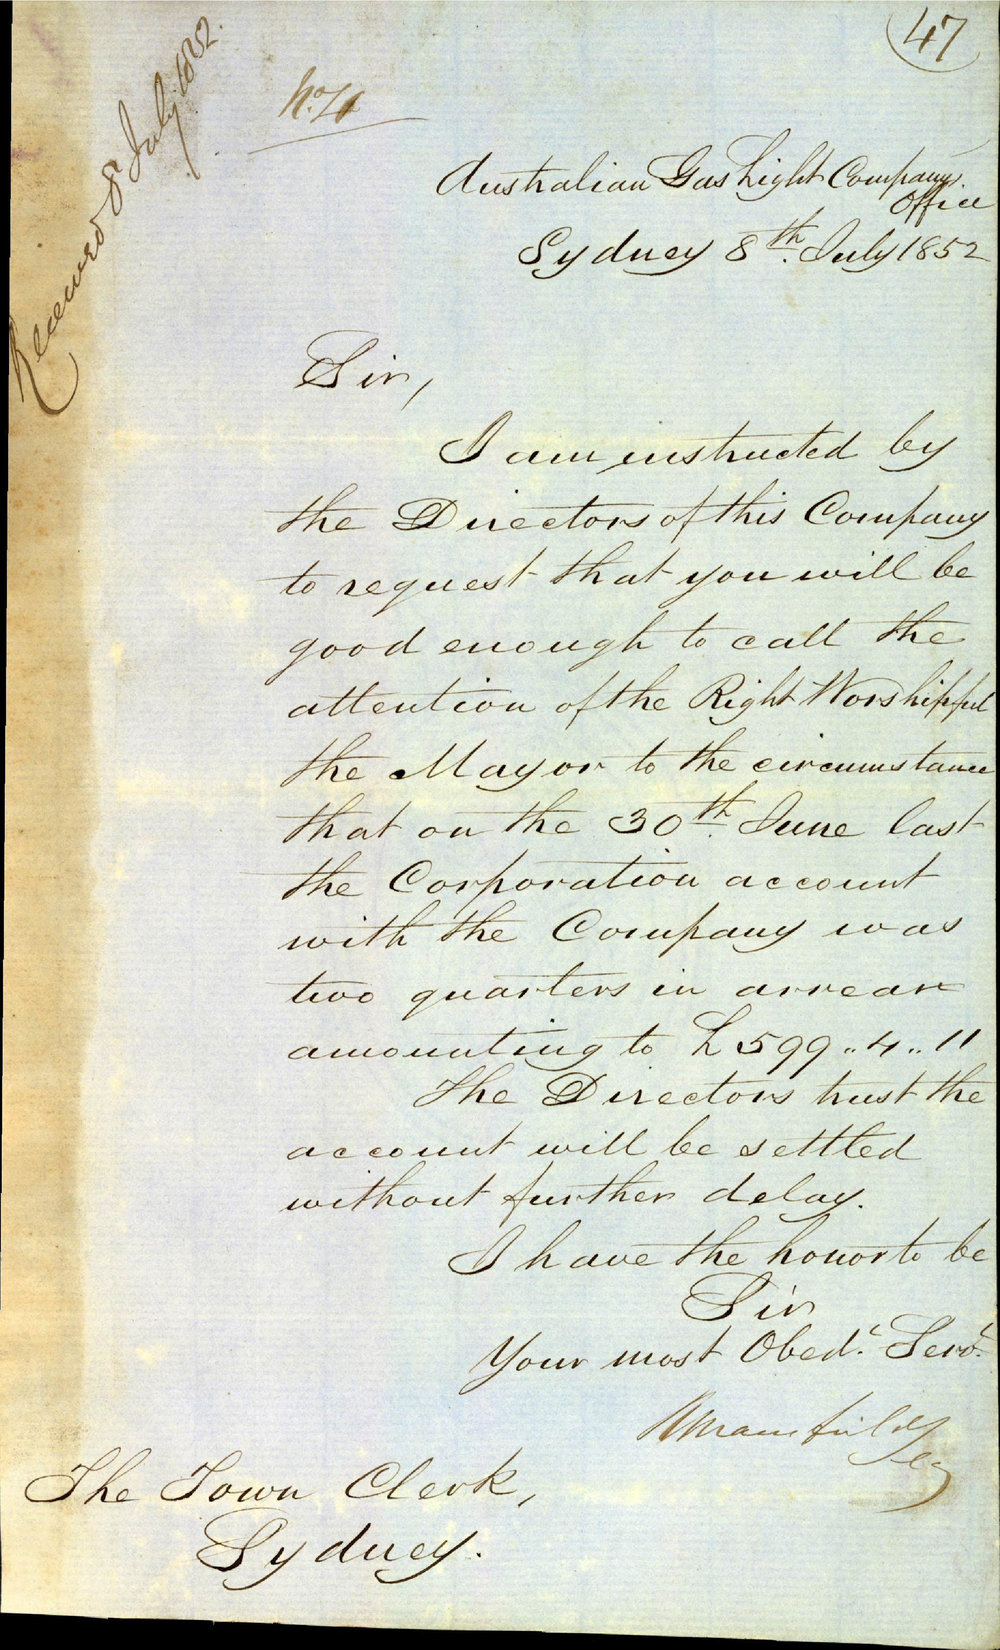 47
Received 8 July 1852.
Australian Gas Light Company
Office
Sydney 8th. July 1852
Sir,
I am instructed by
the Directors of this Company
to request that you will be
good enough to call the
attention of the Right Worshipful
the Mayor to the circumstance
that on the 30th. June last
the Corporation account
with the Company was
two quarters in arrear
amounting to £599..4..11
The Directors trust the
account will be settled
without further delay.
I have the honor to be
Sir
Your most Obedt. Servt.
Mansfield
Secy
The Town Clerk,
Sydney.